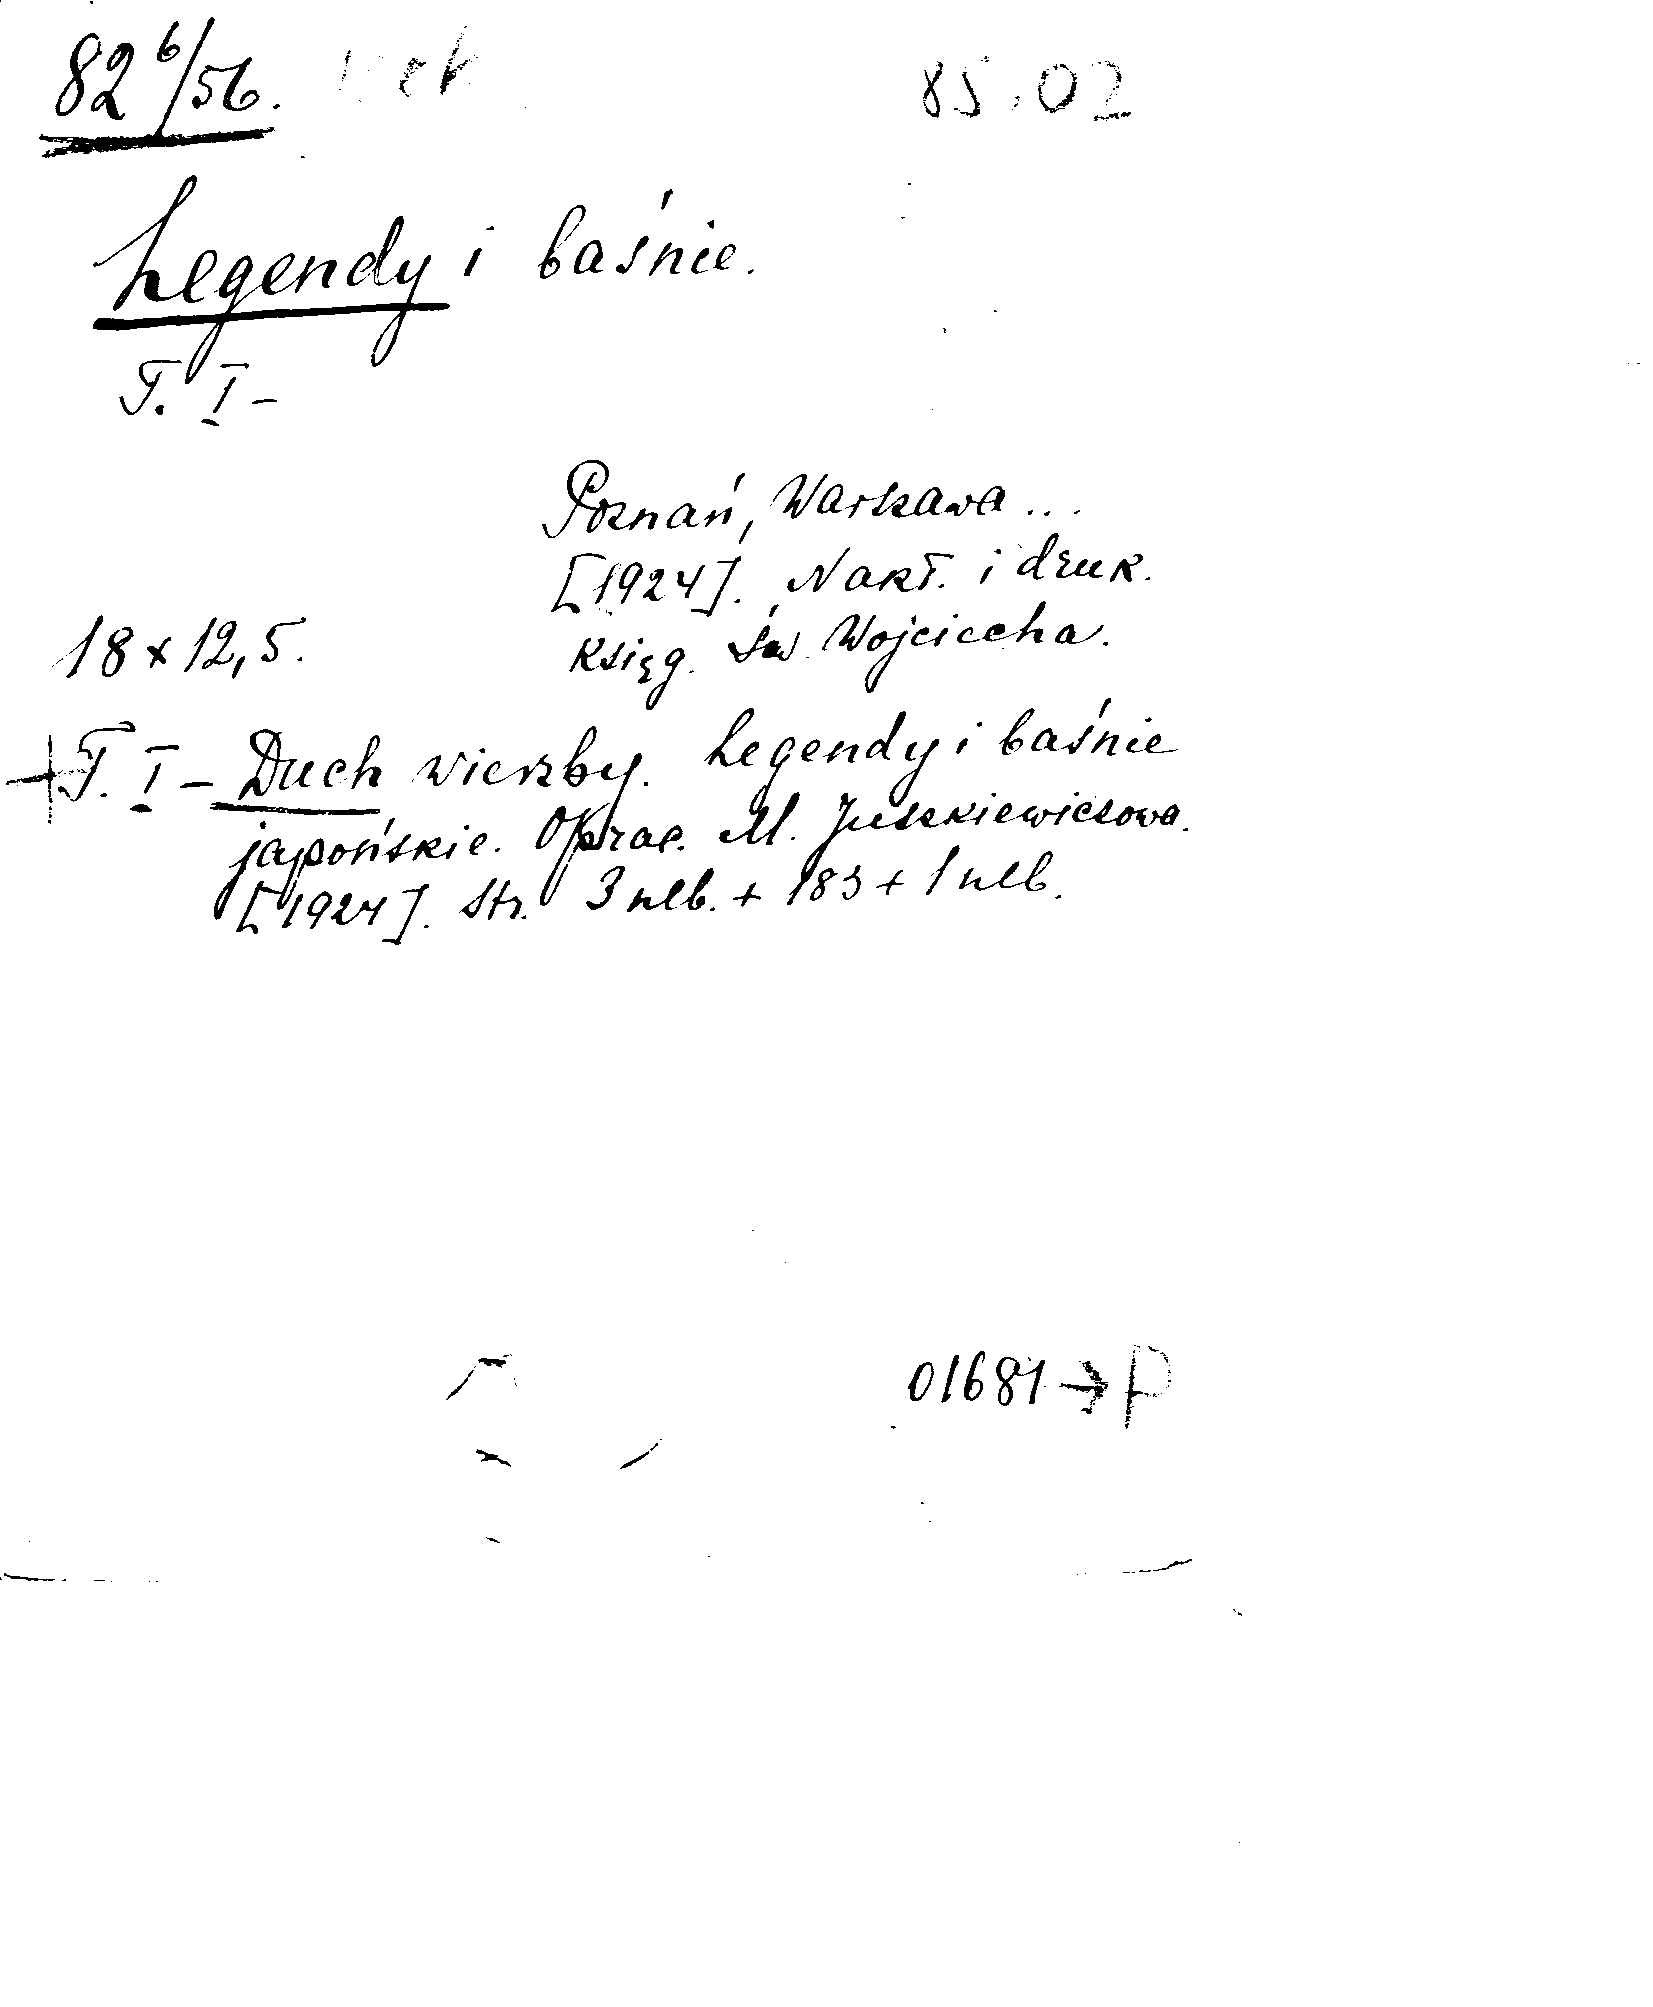 82 6/56. 85.02
Legendy i baśnie.
T. I -
Poznań, Warszawa ...
[1924]. Nakł. i druk.
18 x 12,5. Księg. św. Wojciecha.
+ T. I - Duch wierzby. Legendy i baśnie
japońskie. Oprac. M. Juszkiewiczowa.
[1924]. Str. 3 nlb. + 183 + 1 nlb.
01681 → P